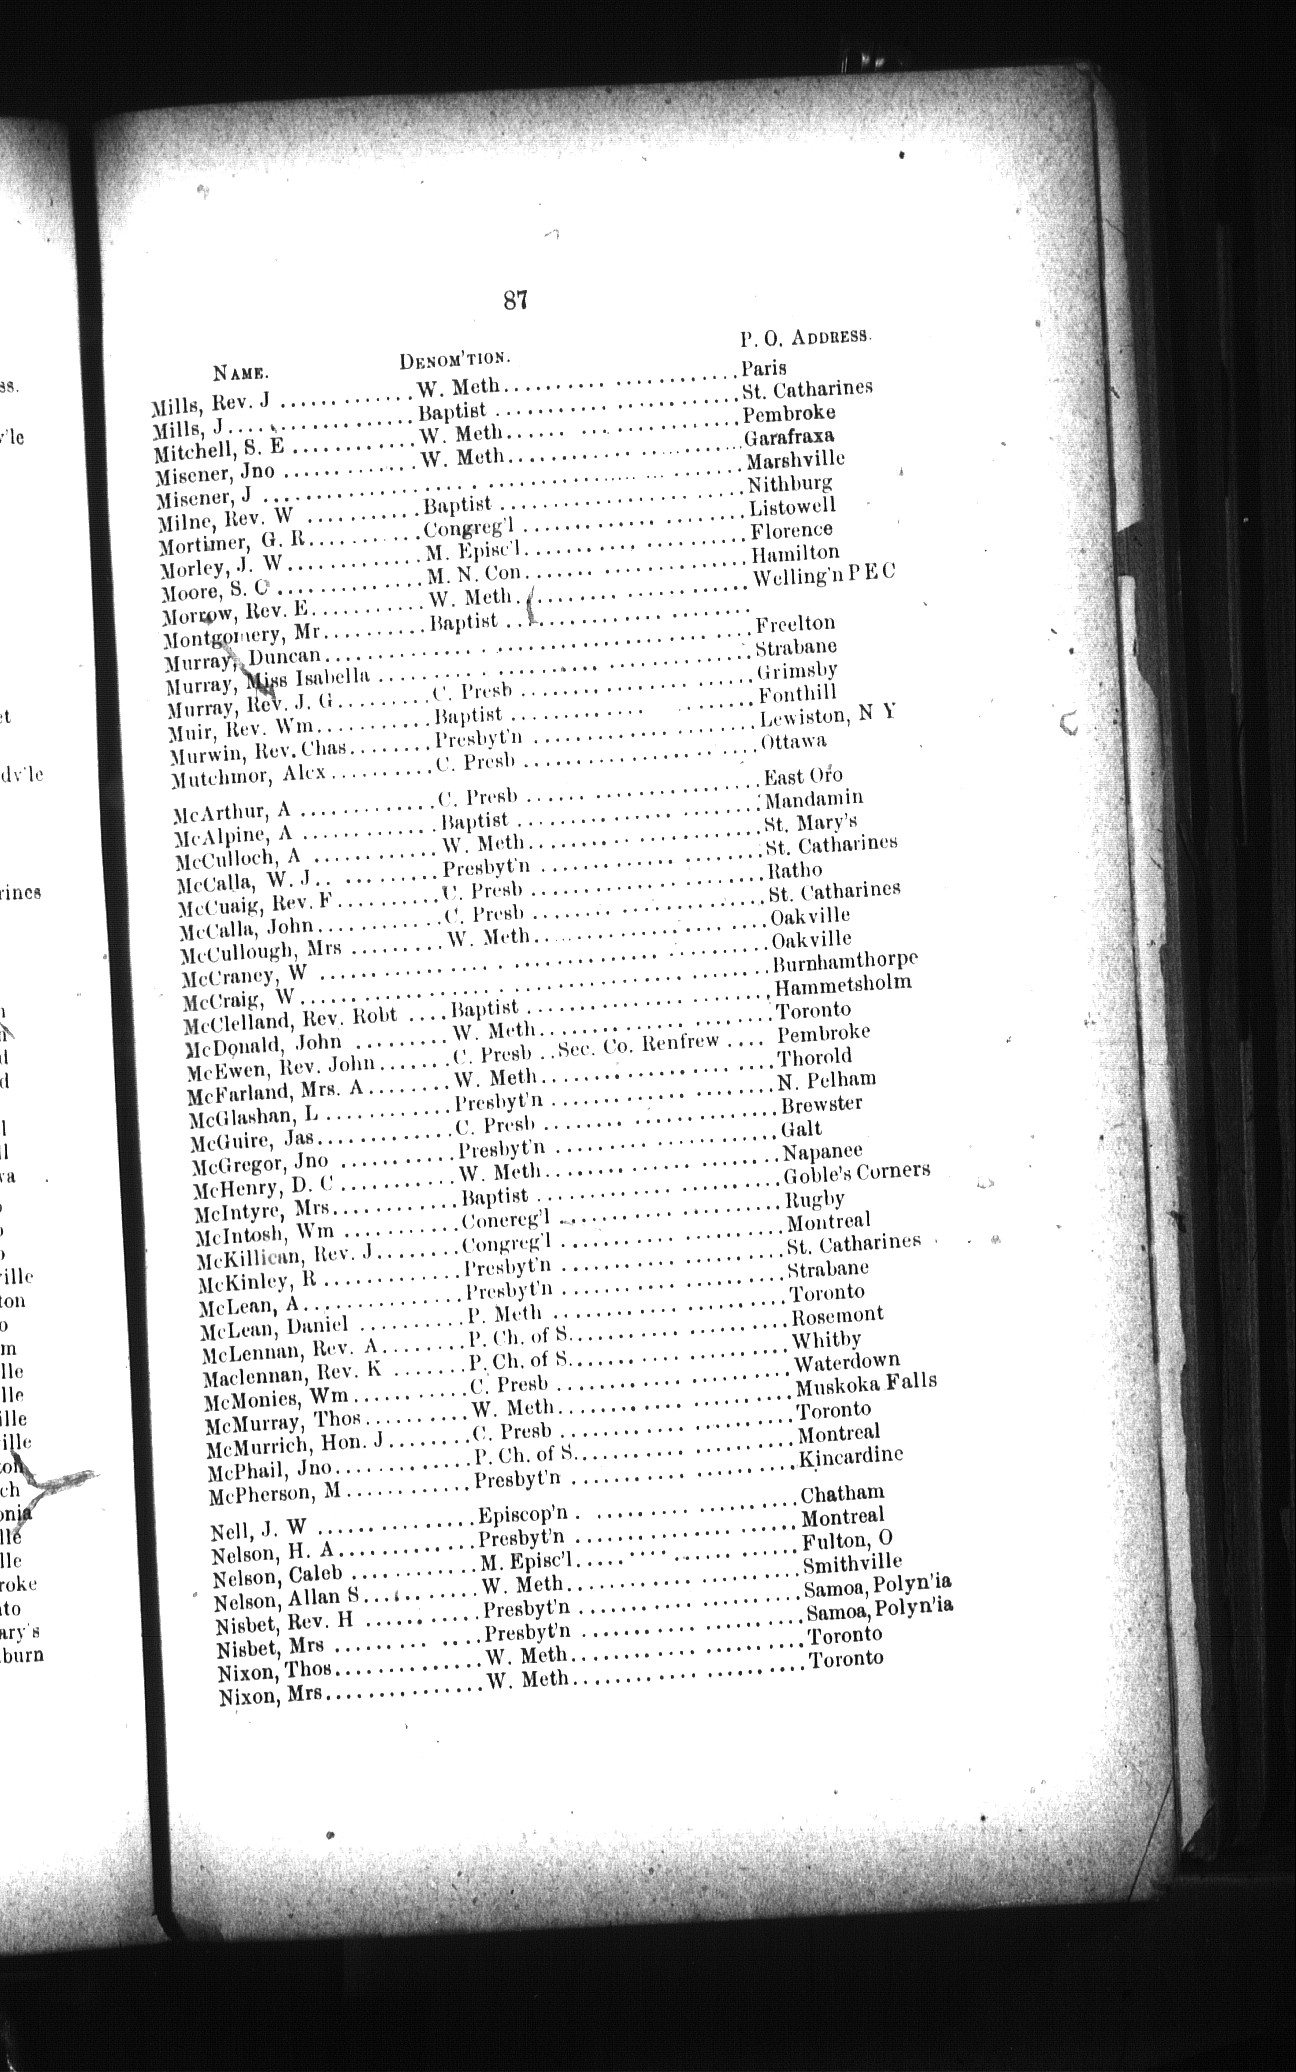 87
NAME. DENOM'TION. P. O. ADDRESS.
Mills, Rev. J ............. W. Meth ...................... Paris
Mills, J ................. Baptist ...................... St. Catharines
Mitchell, S. E ............ W. Meth ...................... Pembroke
Misener, Jno ............. W. Meth ...................... Garafraxa
Misener, J ...................................... Marshville
Milne, Rev. W ........... Baptist ...................... Nithburg
Mortimer, G. R ........... Congreg'l ...................... Listowell
Morley, J. W ............. M. Episc'l ...................... Florence
Moore, S. C .............. M. N. Con ...................... Hamilton
Morrow, Rev. E ........... W. Meth ...................... Welling'n P E C
Montgomery, Mr .......... Baptist ......................
Murray, Duncan ...................................... Freelton
Murray, Miss Isabella ...................................... Strabane
Murray, Rev. J. G ......... C. Presb ...................... Grimsby
Muir, Rev. Wm ........... Baptist ...................... Fonthill
Murwin, Rev. Chas ........ Presbyt'n ...................... Lewiston, N Y
Mutchmor, Alex .......... C. Presb ...................... Ottawa
McArthur, A ............. C. Presb ...................... East Oro
McAlpine, A ............. Baptist ...................... Mandamin
McCulloch, A ............ W. Meth ...................... St. Mary's
McCalla, W. J ........... Presbyt'n ...................... St. Catharines
McCuaig, Rev. F .......... C. Presb ...................... Ratho
McCalla, John ............ C. Presb ...................... St. Catharines
McCullough, Mrs ......... W. Meth ...................... Oakville
McCraney, W ...................................... Oakville
McCraig, W ...................................... Burnhamthorpe
McClelland, Rev. Robt .... Baptist ...................... Hammetsholm
McDonald, John ......... W. Meth ...................... Toronto
McEwen, Rev. John ....... C. Presb .. Sec. Co. Renfrew .... Pembroke
McFarland, Mrs. A ........ W. Meth ...................... Thorold
McGlashan, L ............ Presbyt'n ...................... N. Pelham
McGuire, Jas ............. C. Presb ...................... Brewster
McGregor, Jno ........... Presbyt'n ...................... Galt
McHenry, D. C ........... W. Meth ...................... Napanee
McIntyre, Mrs ............ Baptist ...................... Goble's Corners
McIntosh, Wm ........... Conereg'l ...................... Rugby
McKillican, Rev. J ........ Congreg'l ...................... Montreal
McKinley, R ............. Presbyt'n ...................... St. Catharines
McLean, A ............... Presbyt'n ...................... Strabane
McLean, Daniel .......... P. Meth ...................... Toronto
McLennan, Rev. A ........ P. Ch. of S. ...................... Rosemont
Maclennan, Rev. K ....... P. Ch. of S. ...................... Whitby
McMonies, Wm ........... C. Presb ...................... Waterdown
McMurray, Thos .......... W. Meth ...................... Muskoka Falls
McMurrich, Hon. J ........ C. Presb ...................... Toronto
McPhail, Jno ............. P. Ch. of S. ...................... Montreal
McPherson, M ............ Presbyt'n ...................... Kincardine
Nell, J. W ............... Episcop'n ...................... Chatham
Nelson, H. A ............. Presbyt'n ...................... Montreal
Nelson, Caleb ............ M. Episc'l ...................... Fulton, O
Nelson, Allan S ........... W. Meth ...................... Smithville
Nisbet, Rev. H ........... Presbyt'n ...................... Samoa, Polyn'ia
Nisbet, Mrs ............. Presbyt'n ...................... Samoa, Polyn'ia
Nixon, Thos .............. W. Meth ...................... Toronto
Nixon, Mrs ............... W. Meth ...................... Toronto